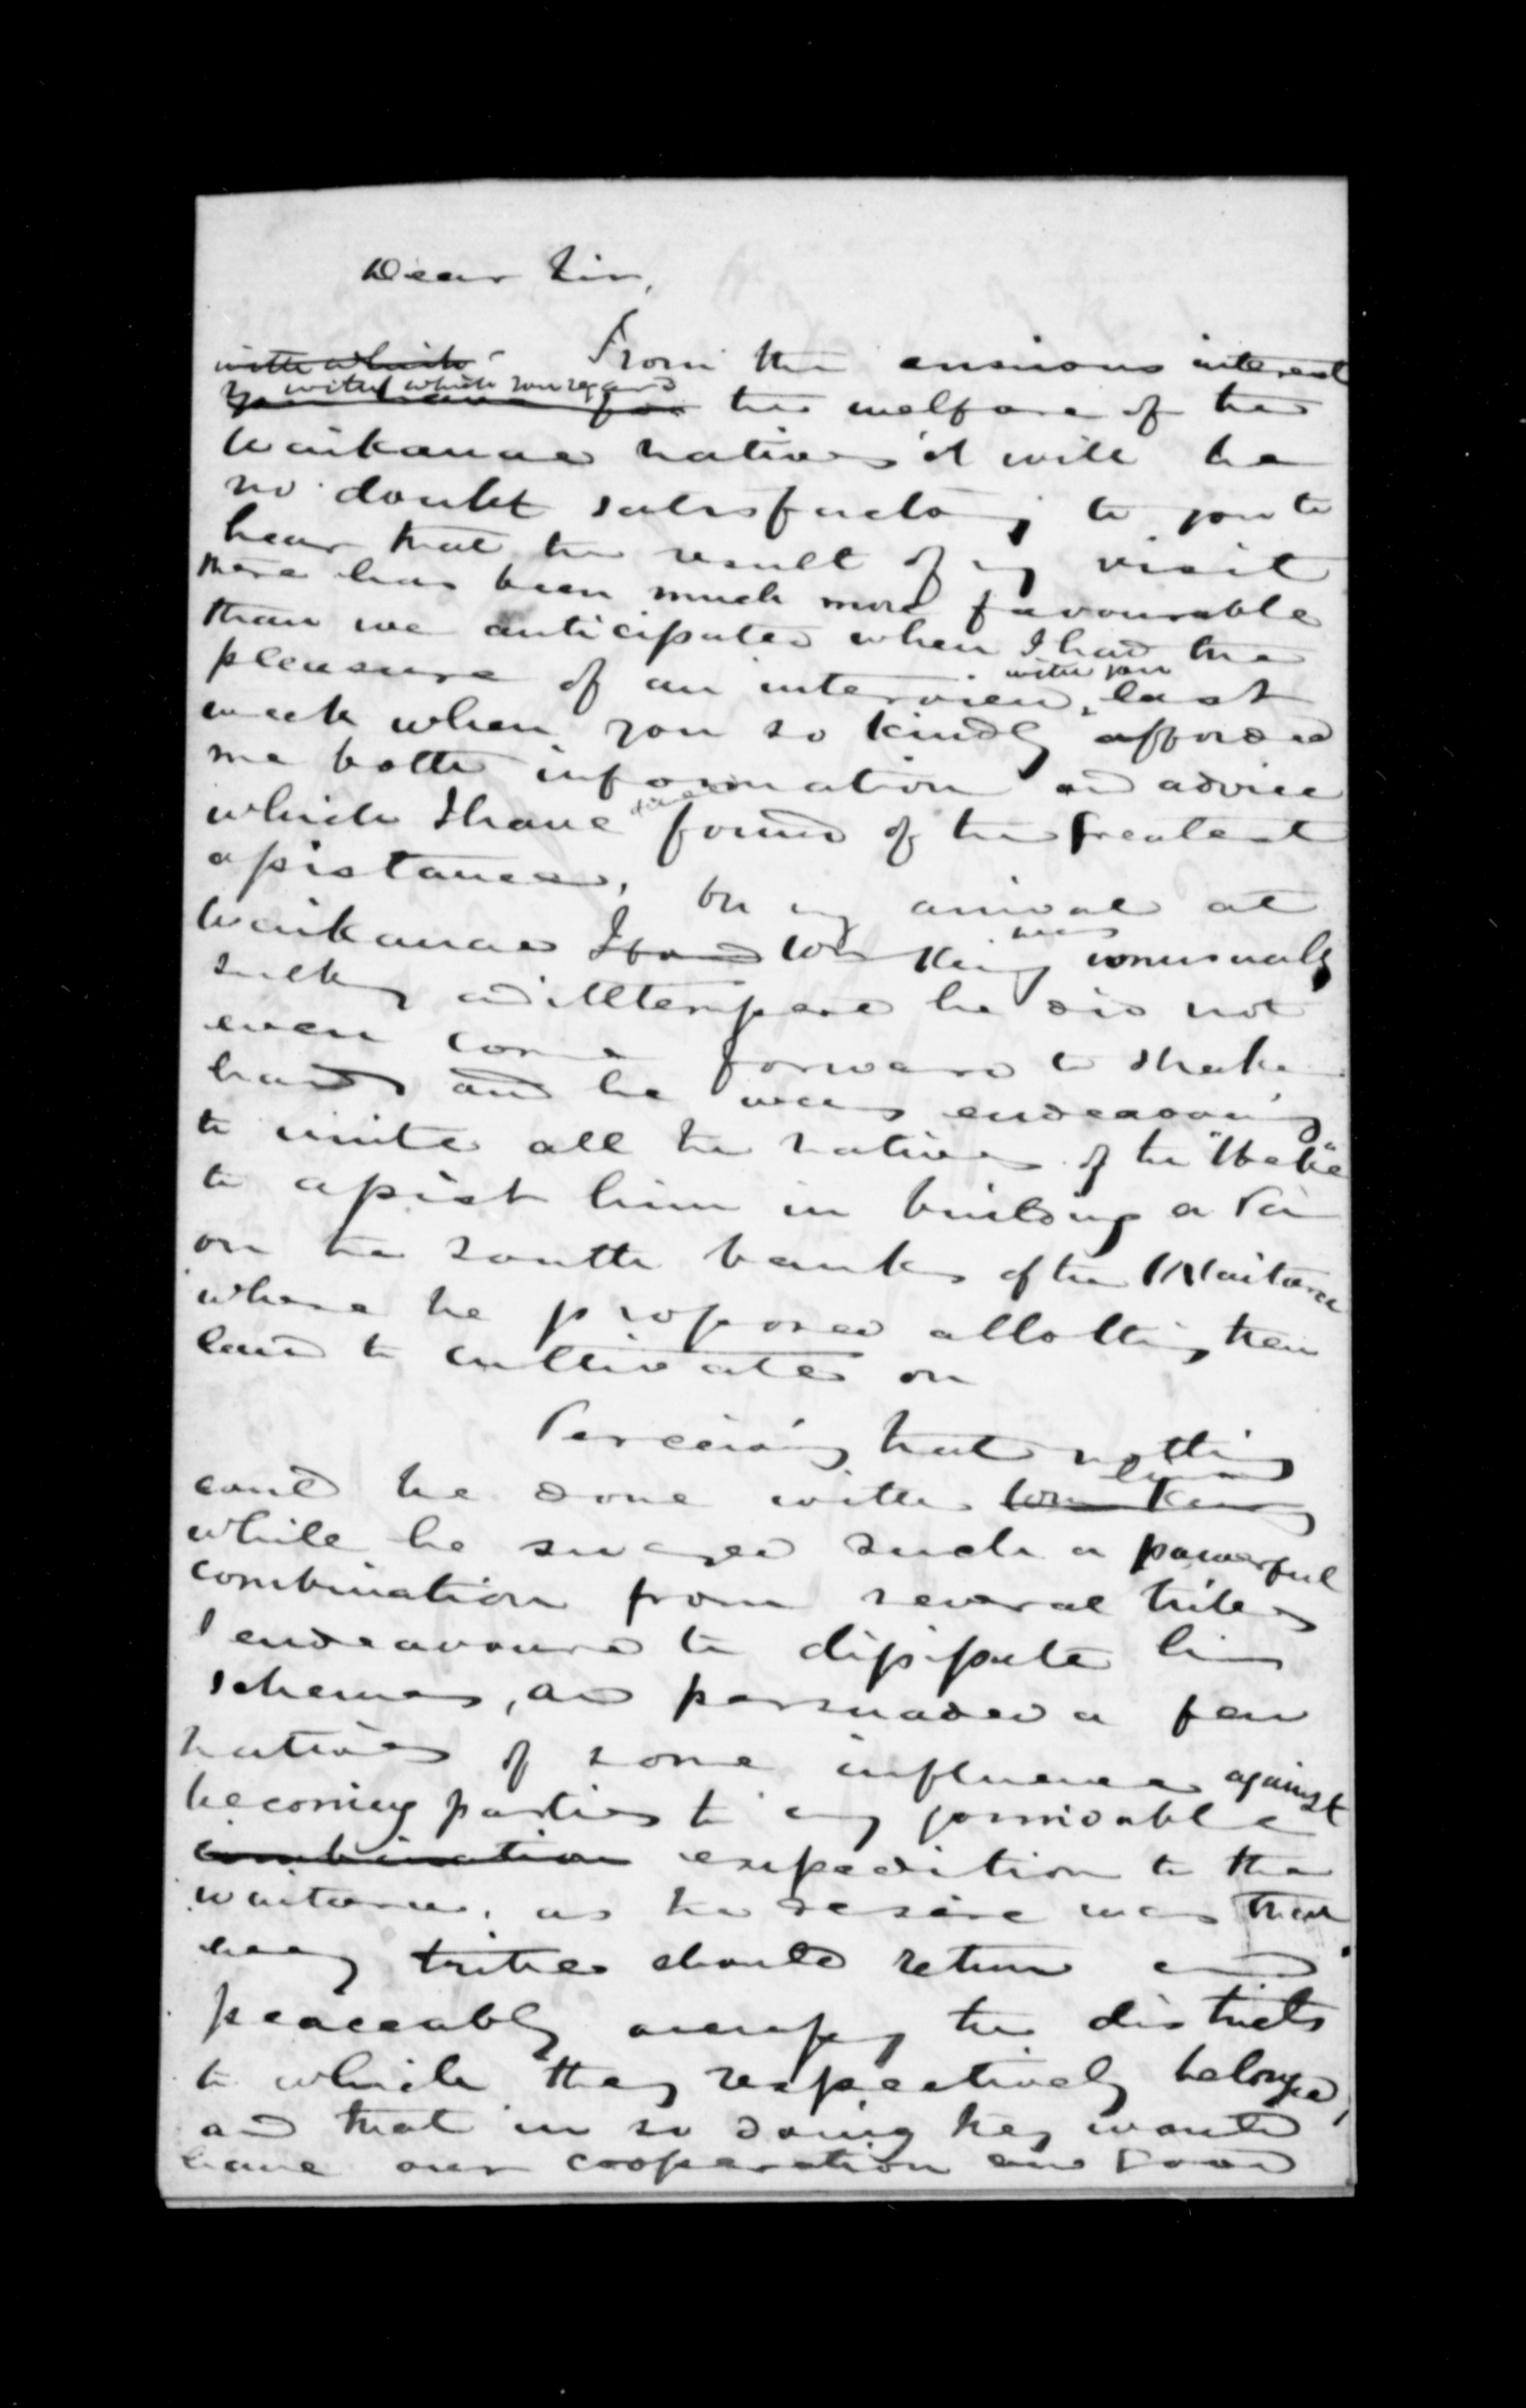 Dear Sir,
From the anxious interest
with which
with which you regard
you have for the welfare of the
Waikanae natives it will be
no doubt satisfactory to you to
hear that the result of my visit
there has been much more favourable
than we anticipated when I had the
pleasure of an interview with you last
week when you so kindly afforded
me both information and advice
which I have since found of the greatest
assistance, On my arrival at
Waikanae I found Wm King was unusually
sulky and illtempered he did not
even come forward to shake
hands and he was endeavouring
to unite all the natives of the "Heke"
to assist him in building a Pa
on the south banks of the Waitara
where he proposed allotting them
land to cultivate on
Perceiving that nothing
could be done with Wm King him
while he swayed such a powerful
combination from several tribes
I endeavoured to dissipate his
schemes, and persuaded a few
natives of some influence against
becoming parties to any formidable
combination expedition to the
Waitara, as the desire was that
many tribes should return and
peaceably occupy the districts
to which they respectively belonged,
and that in so doing they would
have our cooperation and good